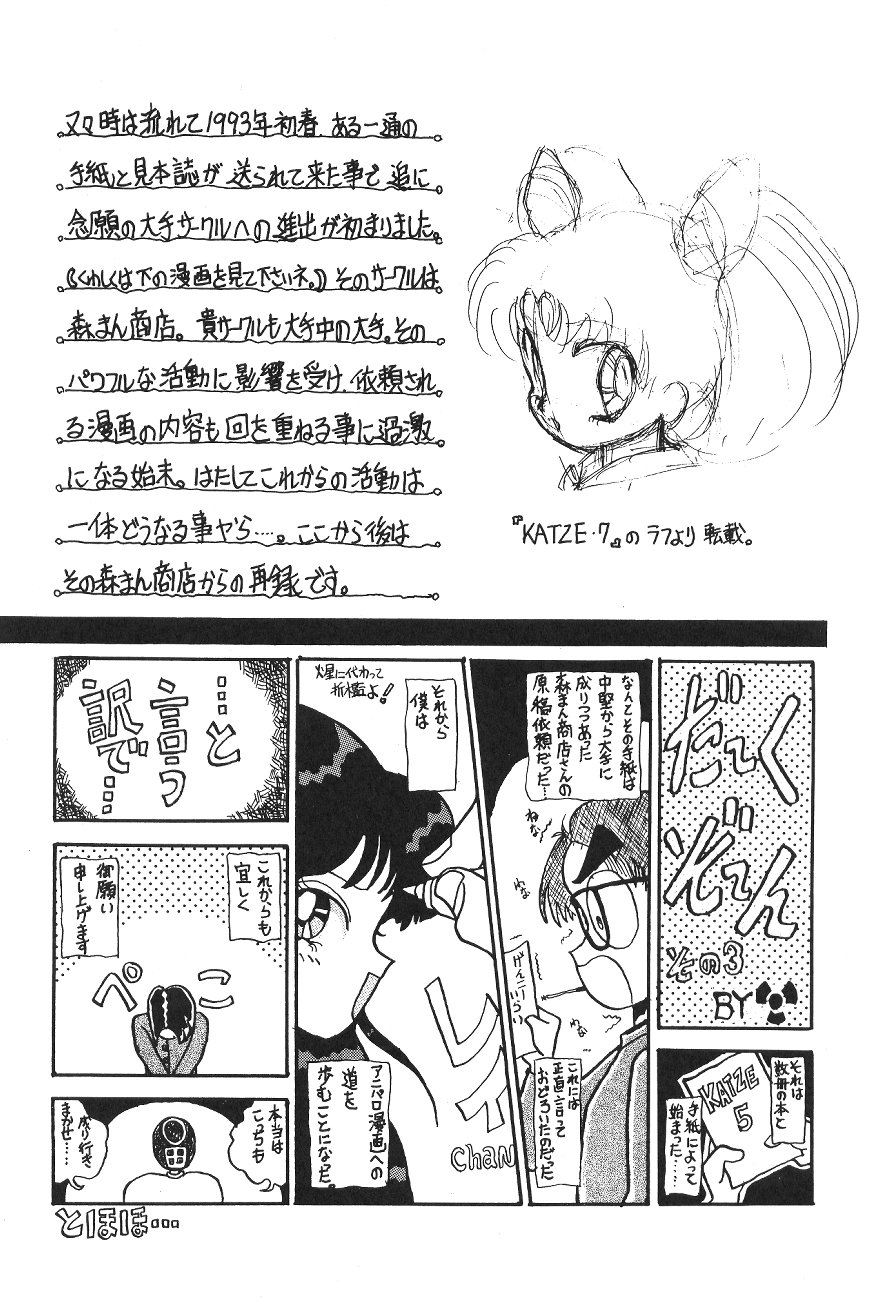 又々時は流れて1993年初春、ある一通の
手紙と見本誌が送られて来た事で追に
念願の大手サークルへの進出が初まりました。
（くわしくは下の漫画を見て下さいネ。）そのサークルは
森まん商店。貴サークルも大手中の大手。その
パワフルな活動に影響を受け、依頼され
る漫画の内容も回を重ねる事に過激
になる始末。はたしてこれからの活動は
一体どうなる事ヤら……。ここから後は
その森まん商店からの再録です。
『KATZE・7』のラフより転載。
だーく
ぞーん
その3
BY
それは
数冊の本と
手紙によって
始まった……
KATZE
5
なんとその手紙は
中堅から大手に
成りつつあった
森まん商店さんの
原稿依頼だった…
わな
わな
わな
げんこー
いらい
これには
正直言って
おどろいたのだった
火星に代わって
折檻よ！
それから
僕は
レイ
Chan
アニパロ漫画への
道を
歩むことになった。
…と
言う
訳で…
これからも
宜しく
御願い
申し上げます
ペこ
本当は
こっちも
成り行き
まかせ……
とほほ…